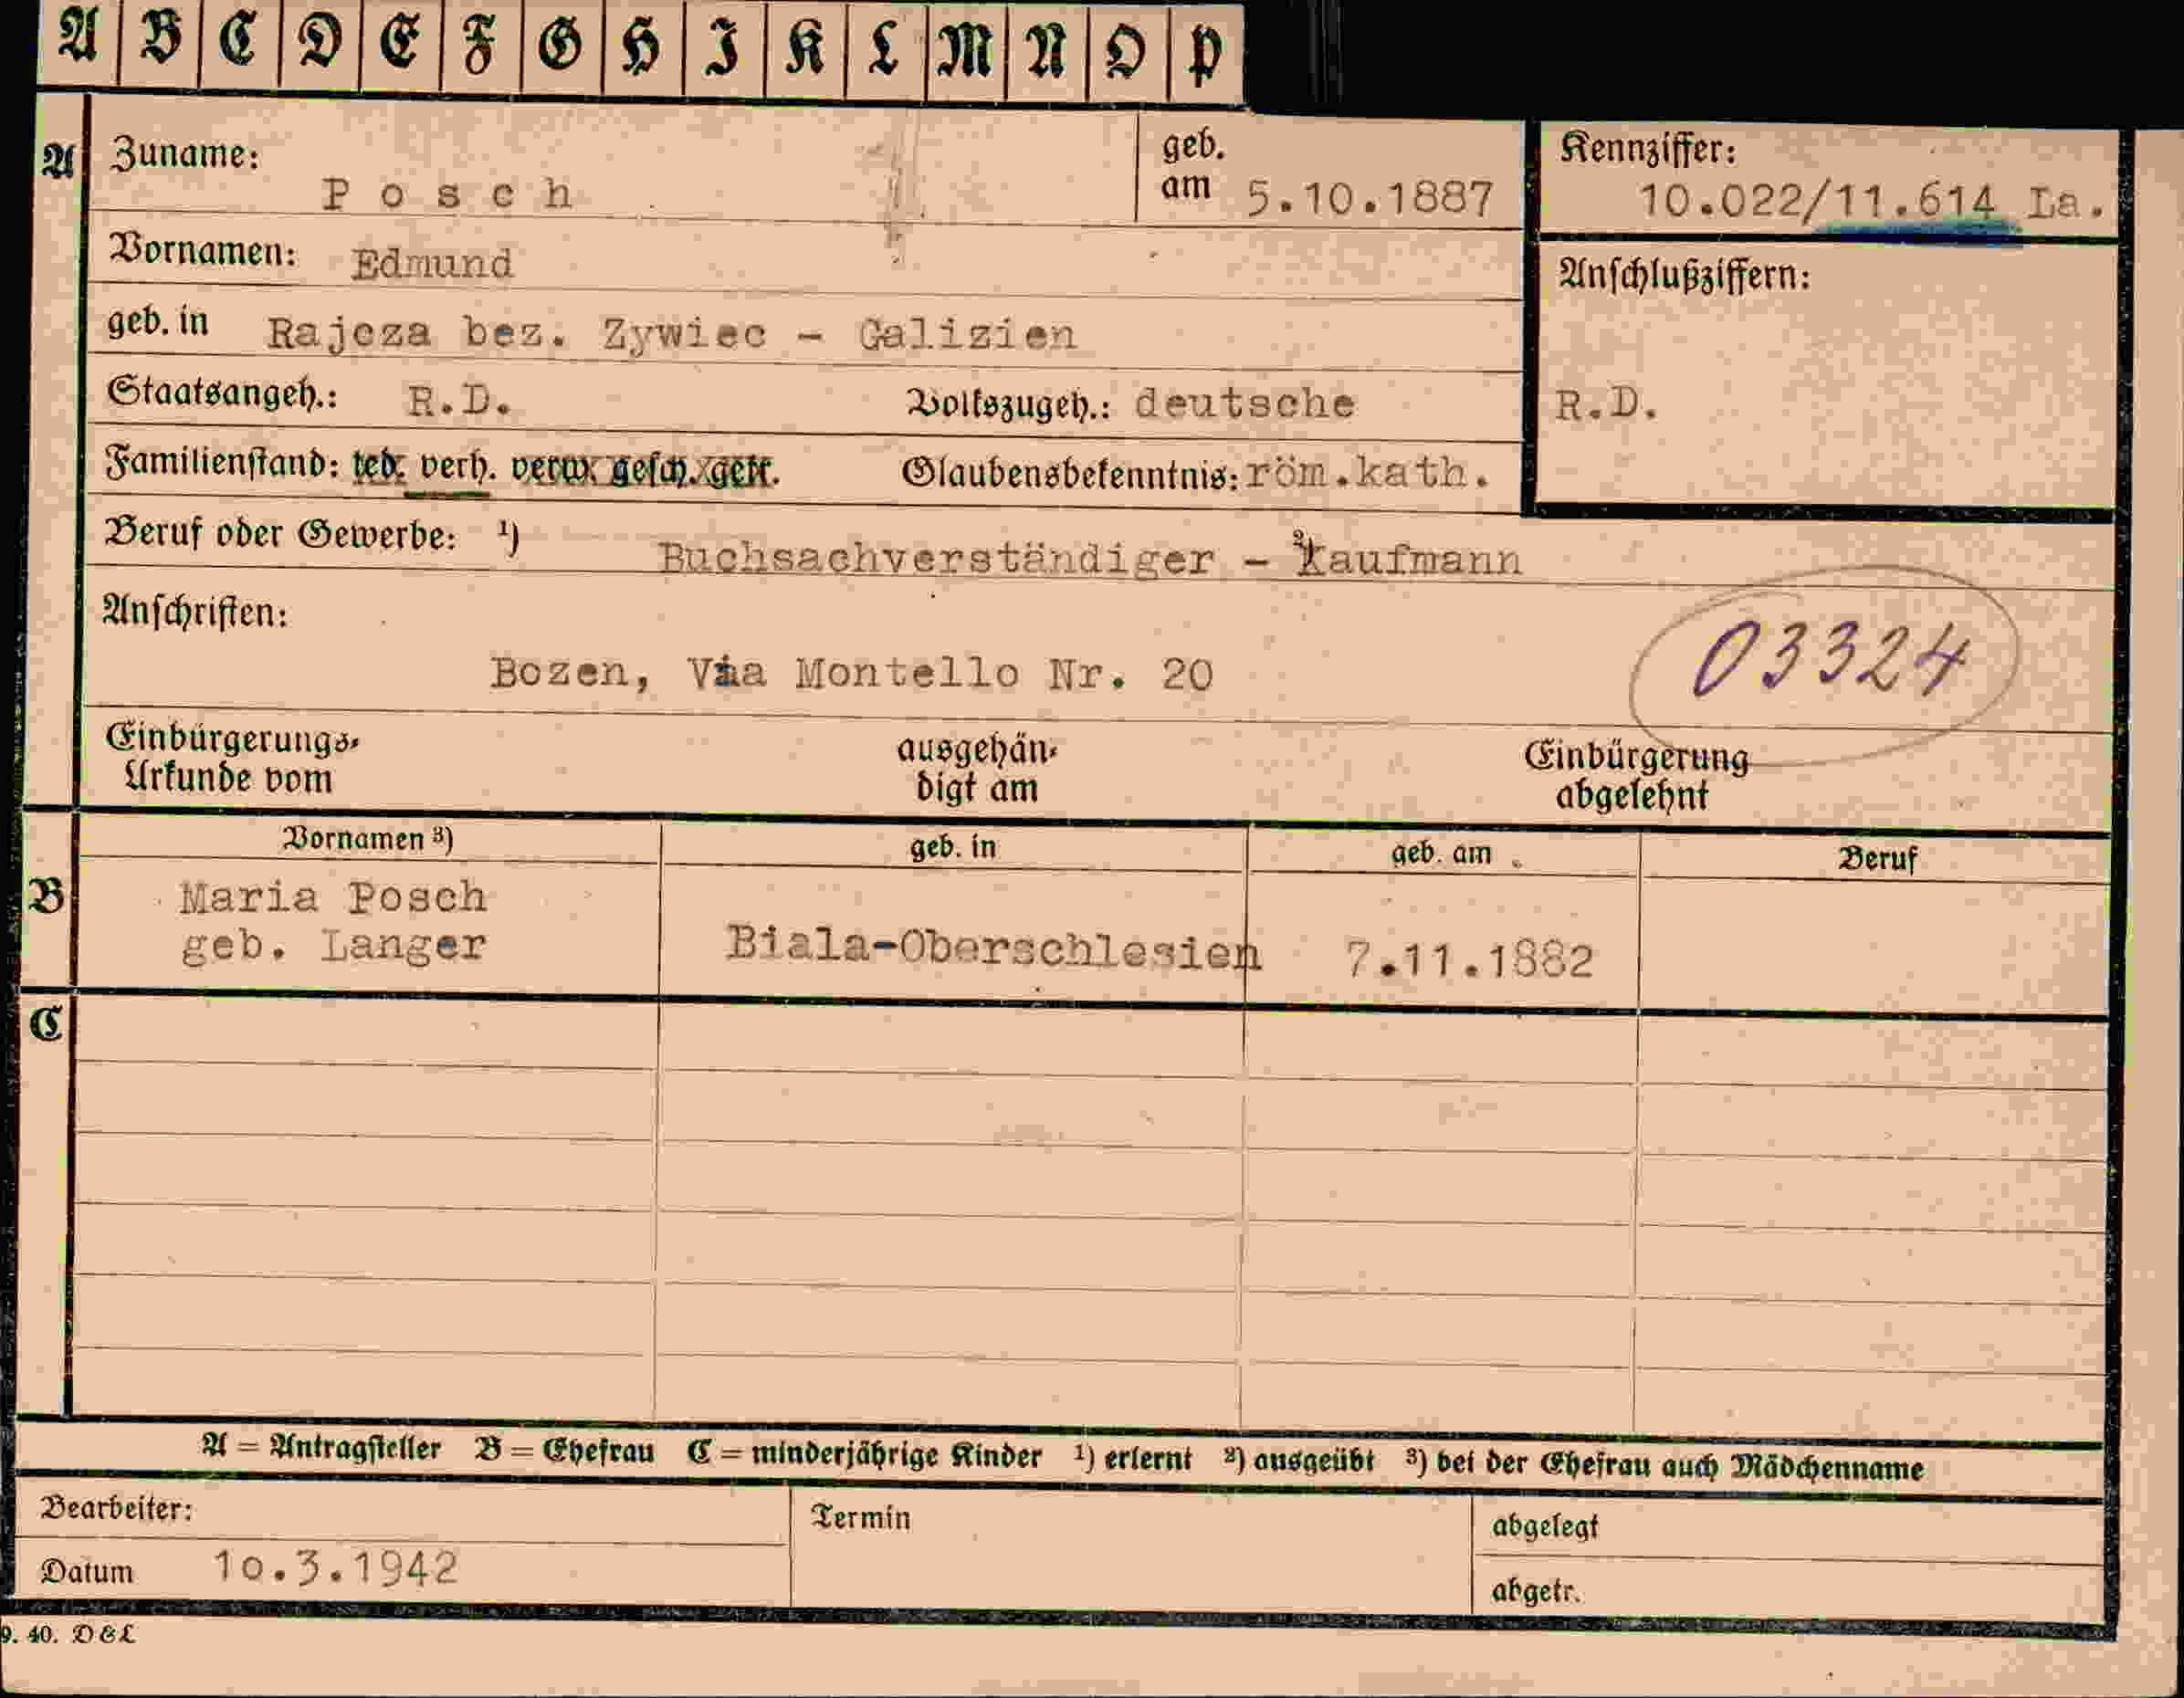 A B C D E F G H I K L M N O P
A Zuname: Posch geb. am 5.10.1887 Kennziffer: 10.022/11.614 La.
Vornamen: Edmund
Anschlußziffern:
geb. in Rajcza bez. Zywiec - Galizien
Staatsangeh.: R.D. Volkszugeh.: deutsche R.D.
Familienstand: led. verh. verw. gesch. getr. Glaubensbekenntnis: röm.kath.
Beruf oder Gewerbe: ¹) Buchsachverständiger - ²)kaufmann
Anschriften:
03324
Bozen, Via Montello Nr. 20
Einbürgerungs- ausgehän- Einbürgerung
Urkunde vom digt am abgelehnt
Vornamen ³) geb. in geb. am Beruf
B Maria Posch
geb. Langer Biala-Oberschlesien 7.11.1882
C
A = Antragsteller B = Ehefrau C = minderjährige Kinder ¹) erlernt ²) ausgeübt ³) bei der Ehefrau auch Mädchenname
Bearbeiter: Termin abgelegt
Datum 10.3.1942 abgetr.
9. 40. D&L